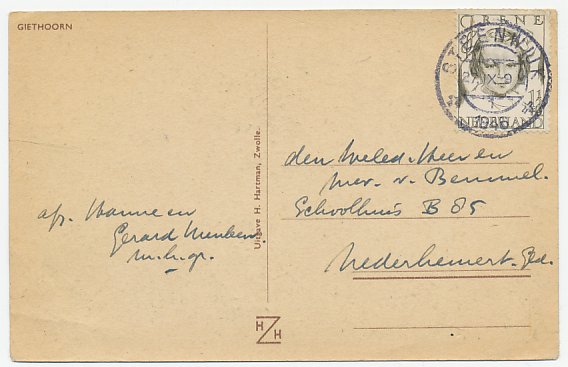 GIETHOORN
IRENE
STEENWIJK
1946
NEDERLAND
Uitgave H. Hartman, Zwolle.
den Weled. Heer en
Mevr. v. Bemmel.
Schoolhuis B 85
Nederhemert. Gld.
afz. Hanne en
Gerard
m.h.gr.
H
Z
H